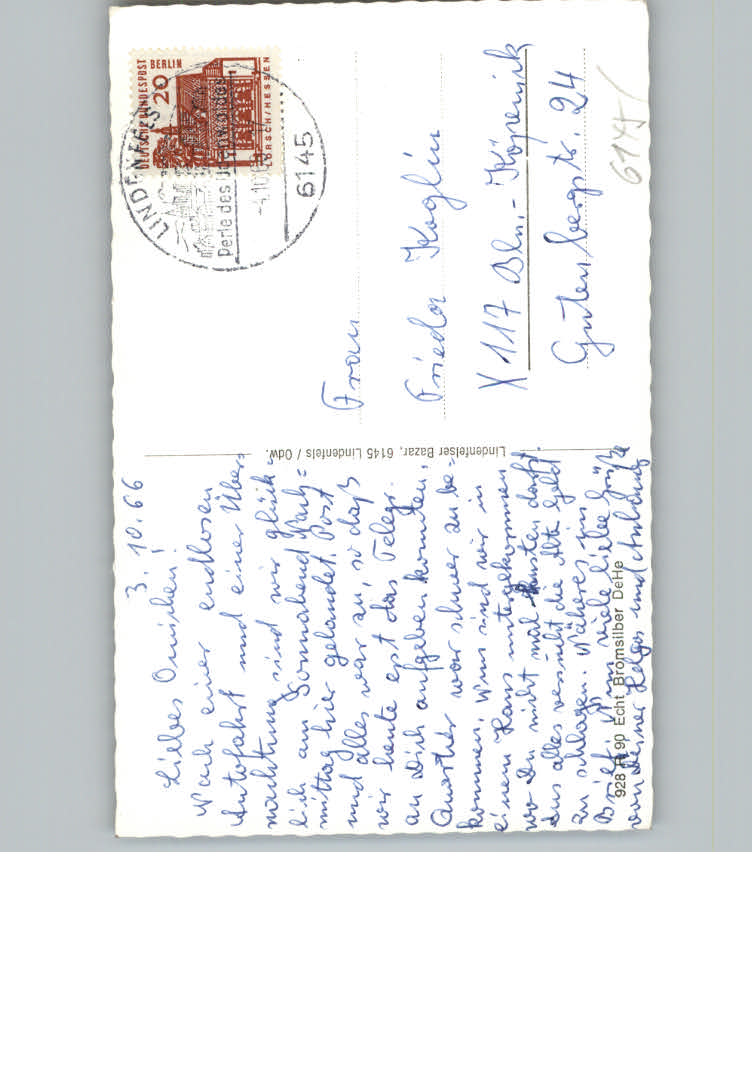 3.10.66
Liebes Omichen!
Nach einer endlosen
Autofahrt und einer Über-
nachtung sind wir glück-
lich am Sonnabend Nach=
mittag hier gelandet. Post
und alles war zu, so daß
wir heute erst das Telegr.
an Dich aufgeben konnten.
Quartier war schwer zu be=
kommen. Wir sind nur in
einem Haus untergekommen
wo Du nicht mal husten darfst.
Aus alles versucht die Alte Geld
zu schlagen. Näheres im
Brief. viele liebe Grüße
von Deiner Helga und
DEUTSCHE BUNDESPOST BERLIN
20
LORSCH/HESSEN
LINDENFELS
Perle des Odenwaldes
-4.10.
6145
Frau
Frieda Koglin
X 117 Bln.-Köpenick
Gutenbergstr. 24
6145/
Lindenfelser Bazar, 6145 Lindenfels / Odw.
928 90 Echt Bromsilber DeHe